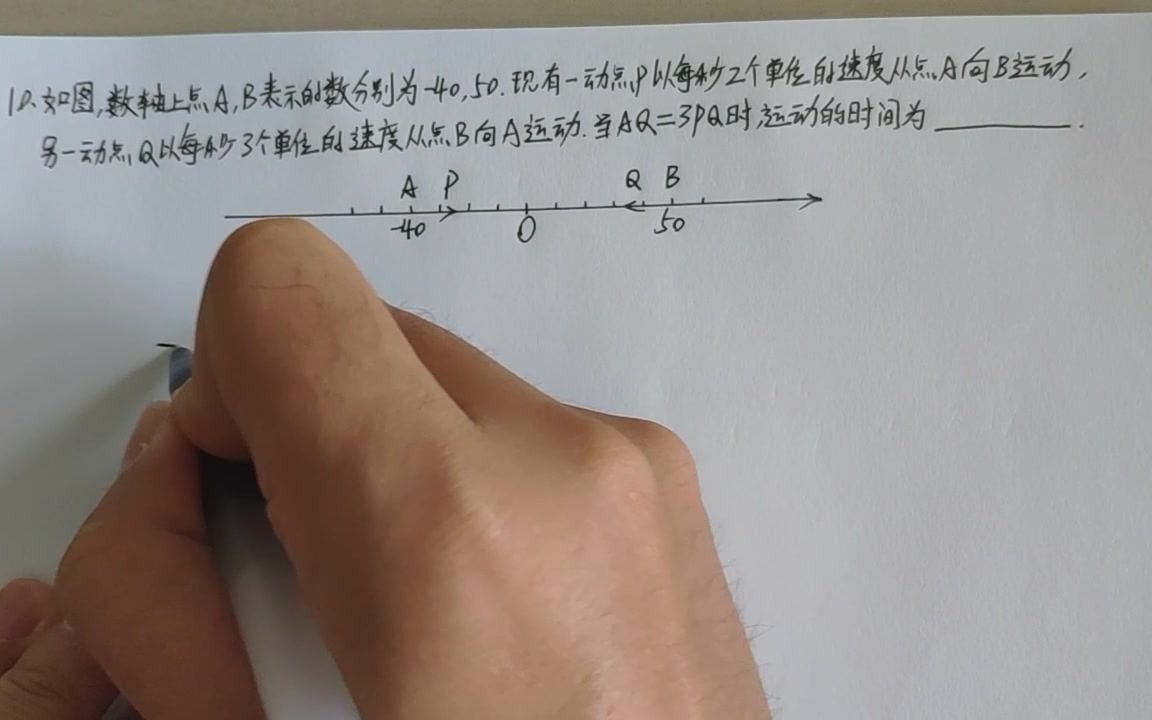 10.如图,数轴上点A,B表示的数分别为-40,50.现有一动点P以每秒2个单位的速度从点A向B运动,
另一动点Q以每秒3个单位的速度从点B向A运动.当AQ=3PQ时,运动的时间为________.
A P Q B
-40 O 50